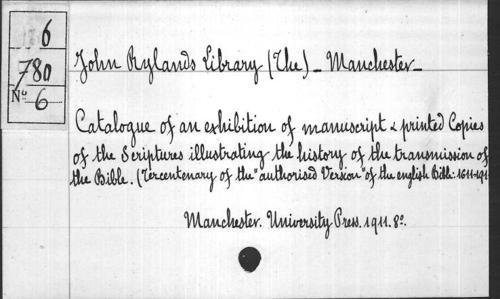 6
780
Nº 6
John Rylands Library (The) _ Manchester _
Catalogue of an exhibition of manuscript & printed Copies
of the Scriptures illustrating the history of the transmission of
the Bible. (Tercentenary of the "authorised Version" of the english Bible: 1611-191
Manchester. University Press. 1911. 8º.